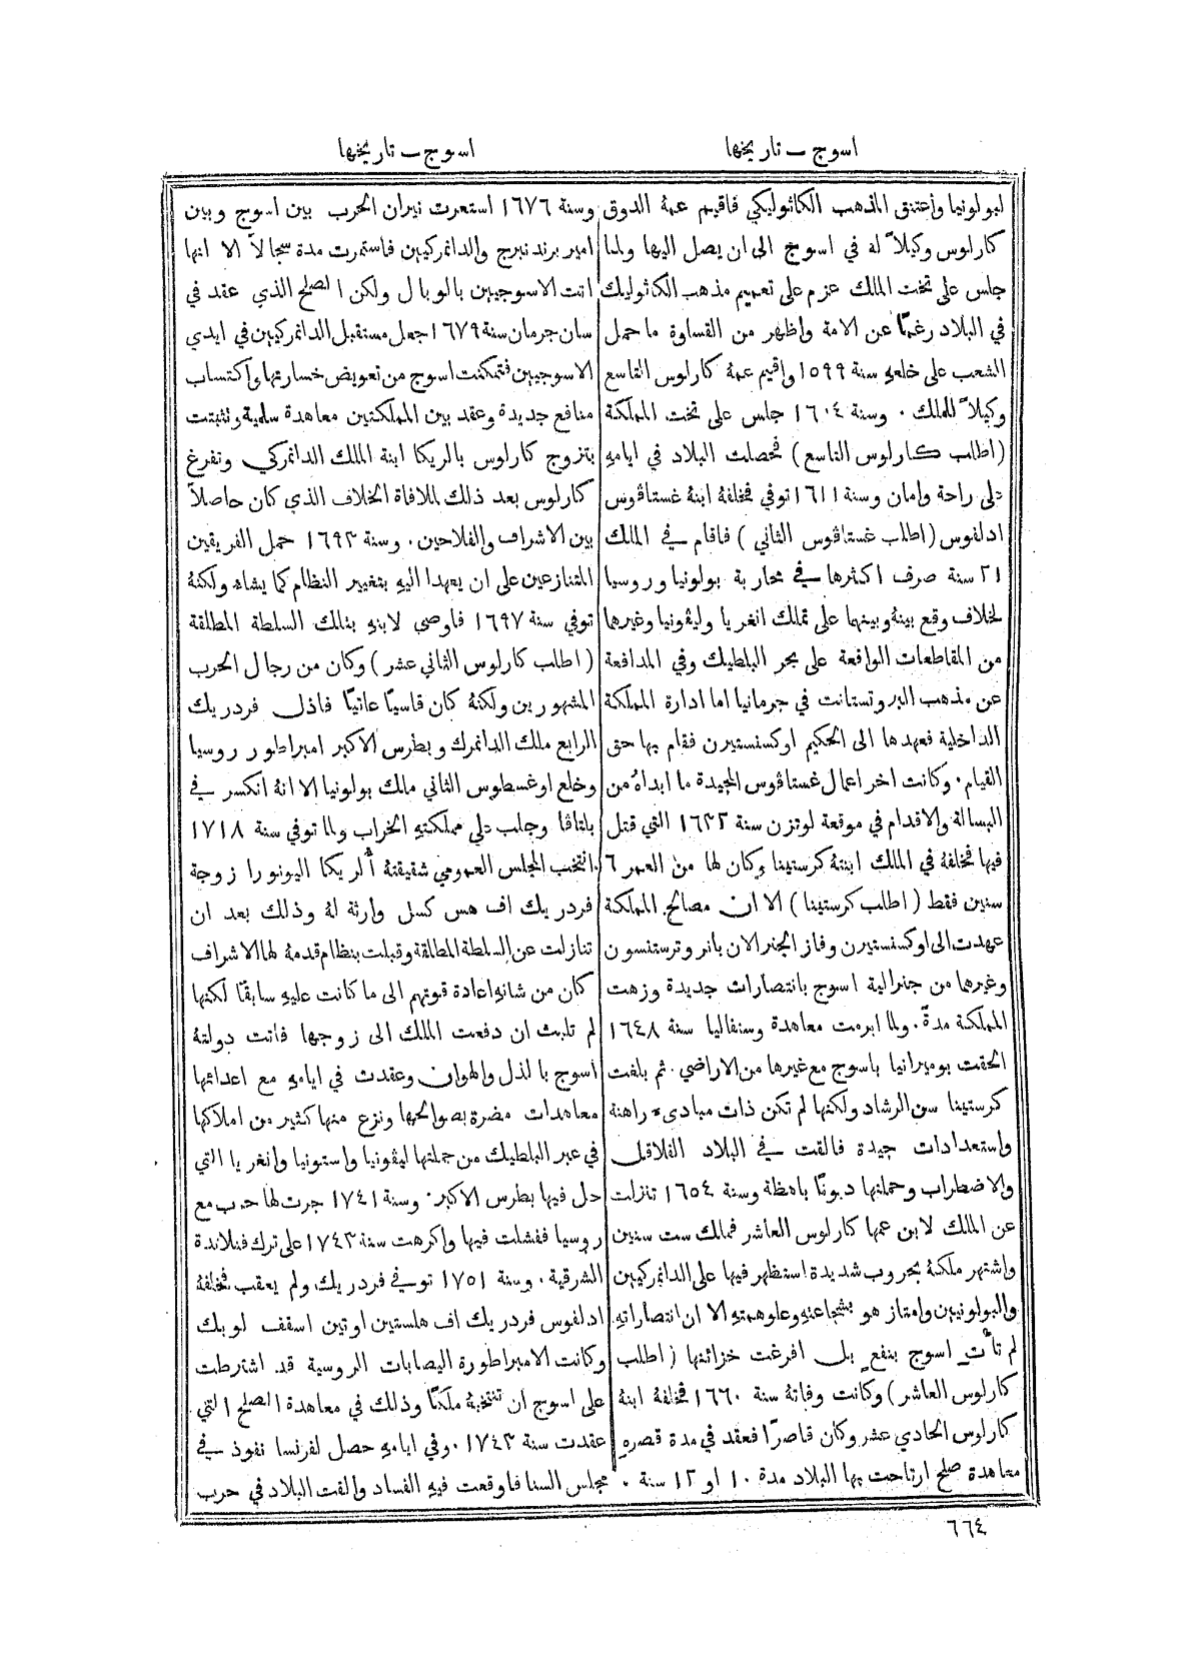 اسوج – تاريخها
لبولونيا واعتنق المذهب الكاثوليكي فاقيم عمهُ الدوق
كارلوس وكيلاً له في اسوج الى ان يصل اليها ولما
جلس على تخت الملك عزم على تعميم مذهب الكاثوليك
في البلاد رغمًا عن الامة واظهر من القساوة ما حمل
الشعب على خلعهِ سنة ١٥٩٩ واقيم عمهُ كارلوس التاسع
وكيلاً للملك ٠ وسنة ١٦٠٤ جلس على تخت المملكة
(اطلب كارلوس التاسع) فحصلت البلاد في ايامهِ
على راحة وامان وسنة ١٦١١ توفي فخلفهُ ابنهُ غستاڤوس
ادلفوس (اطلب غستاڤوس الثاني) فاقام في الملك
٢١ سنة صرف اكثرها في محاربة بولونيا وروسيا
لخلاف وقع بينهُ وبينها على تملك انغريا وليڤونيا وغيرها
من المقاطعات الواقعة على بحر البلطيك وفي المدافعة
عن مذهب البروتستانت في جرمانيا اما ادارة المملكة
الداخلية فعهدها الى الحكيم اوكسنستيرن فقام بها حق
القيام ٠ وكانت اخر اعمال غستاڤوس المجيدة ما ابداهُ من
البسالة والاقدام في موقعة لوتزن سنة ١٦٣٢ التي قتل
فيها فخلفهُ في الملك ابنتهُ كرستينا وكان لها من العمر ٦
سنين فقط (اطلب كرستينا) الا ان مصالح المملكة
عهدت الى اوكسنستيرن وفاز الجنرالان بانر وترستنسون
وغيرها من جنرالية اسوج بانتصارات جديدة وزهت
المملكة مدةً ٠ ولما ابرمت معاهدة وستفاليا سنة ١٦٤٨
الحقت بوميرانيا باسوج مع غيرها من الاراضي ٠ ثم بلغت
كرستينا سن الرشاد ولكنها لم تكن ذات مبادىء راهنة
واستعدادات جيدة فالقت في البلاد القلاقل
والاضطراب وحملتها ديونًا باهظة وسنة ١٦٥٤ تنازلت
عن الملك لابن عمها كارلوس العاشر فملك ست سنين
واشتهر ملكهُ بحروب شديدة استظهر فيها على الدانمركيين
والبولونيين وامتاز هو بشجاعتهِ وعلو همتهِ الا ان انتصاراتهِ
لم تأتِ اسوج بنفعٍ بل افرغت خزائنها (اطلب
كارلوس العاشر) وكانت وفاتهُ سنة ١٦٦٠ فخلفهُ ابنهُ
كارلوس الحادي عشر وكان قاصرًا فعقد في مدة قصرهِ
معاهدة صلح ارتاحت بها البلاد مدة ١٠ او ١٢ سنة ٠
اسوج – تاريخها
وسنة ١٦٧٦ استعرت نيران الحرب بين اسوج وبين
امير برندنبرج والدانمركيين فاستمرت مدة سجالاً الا انها
اتت الاسوجيين بالوبال ولكن الصلح الذي عقد في
سان جرمان سنة ١٦٧٩ جعل مستقبل الدانمركيين في ايدي
الاسوجيين فتمكنت اسوج من تعويض خسارتها واكتساب
منافع جديدة وعقد بين المملكتين معاهدة سلمية وتثبتت
بتزوج كارلوس بالريكا ابنة الملك الدانمركي وتفرغ
كارلوس بعد ذلك لملافاة الخلاف الذي كان حاصلاً
بين الاشراف والفلاحين ٠ وسنة ١٦٩٣ حمل الفريقين
المتنازعين على ان يعهدا اليهِ بتغيير النظام كما يشاء ولكنهُ
توفي سنة ١٦٩٧ فاوصى لابنهِ بتلك السلطة المطلقة
(اطلب كارلوس الثاني عشر) وكان من رجال الحرب
المشهورين ولكنهُ كان قاسيًا عاتيًا فاذل فردريك
الرابع ملك الدانمرك وبطرس الاكبر امبراطور روسيا
وخلع اوغسطوس الثاني ملك بولونيا الا انهُ انكسر في
بلتاڤا وجلب على مملكتهِ الخراب ولما توفي سنة ١٧١٨
انتخب المجلس العمومي شقيقتهُ ألريكا اليونورا زوجة
فردريك اف هس كسل وارثة لهُ وذلك بعد ان
تنازلت عن السلطة المطلقة وقبلت بنظام قدمهُ لها الاشراف
كان من شانهِ اعادة قوتهم الى ما كانت عليهِ سابقًا لكنها
لم تلبث ان دفعت الملك الى زوجها فاتت دولتهُ
اسوج بالذل والهوان وعقدت في ايامهِ مع اعدائها
معاهدات مضرة بصوالحها ونزع منها كثير من املاكها
في عبر البلطيك من جملتها ليڤونيا واستونيا وانغريا التي
حل فيها بطرس الاكبر ٠ وسنة ١٧٤١ جرت لها حرب مع
روسيا ففشلت فيها واكرهت سنة ١٧٤٣ على ترك فنلاندة
الشرقية ٠ وسنة ١٧٥١ توفي فردريك ولم يعقب فخلفهُ
ادلفوس فردريك اف هلستين اوتين اسقف لوبك
وكانت الامبراطورة اليصابات الروسية قد اشترطت
على اسوج ان تنتخبهُ ملكًا وذلك في معاهدة الصلح التي
عقدت سنة ١٧٤٣ ٠ وفي ايامهِ حصل لفرنسا نفوذ في
مجلس السنا فاوقعت فيهِ الفساد والقت البلاد في حرب
٦٦٤